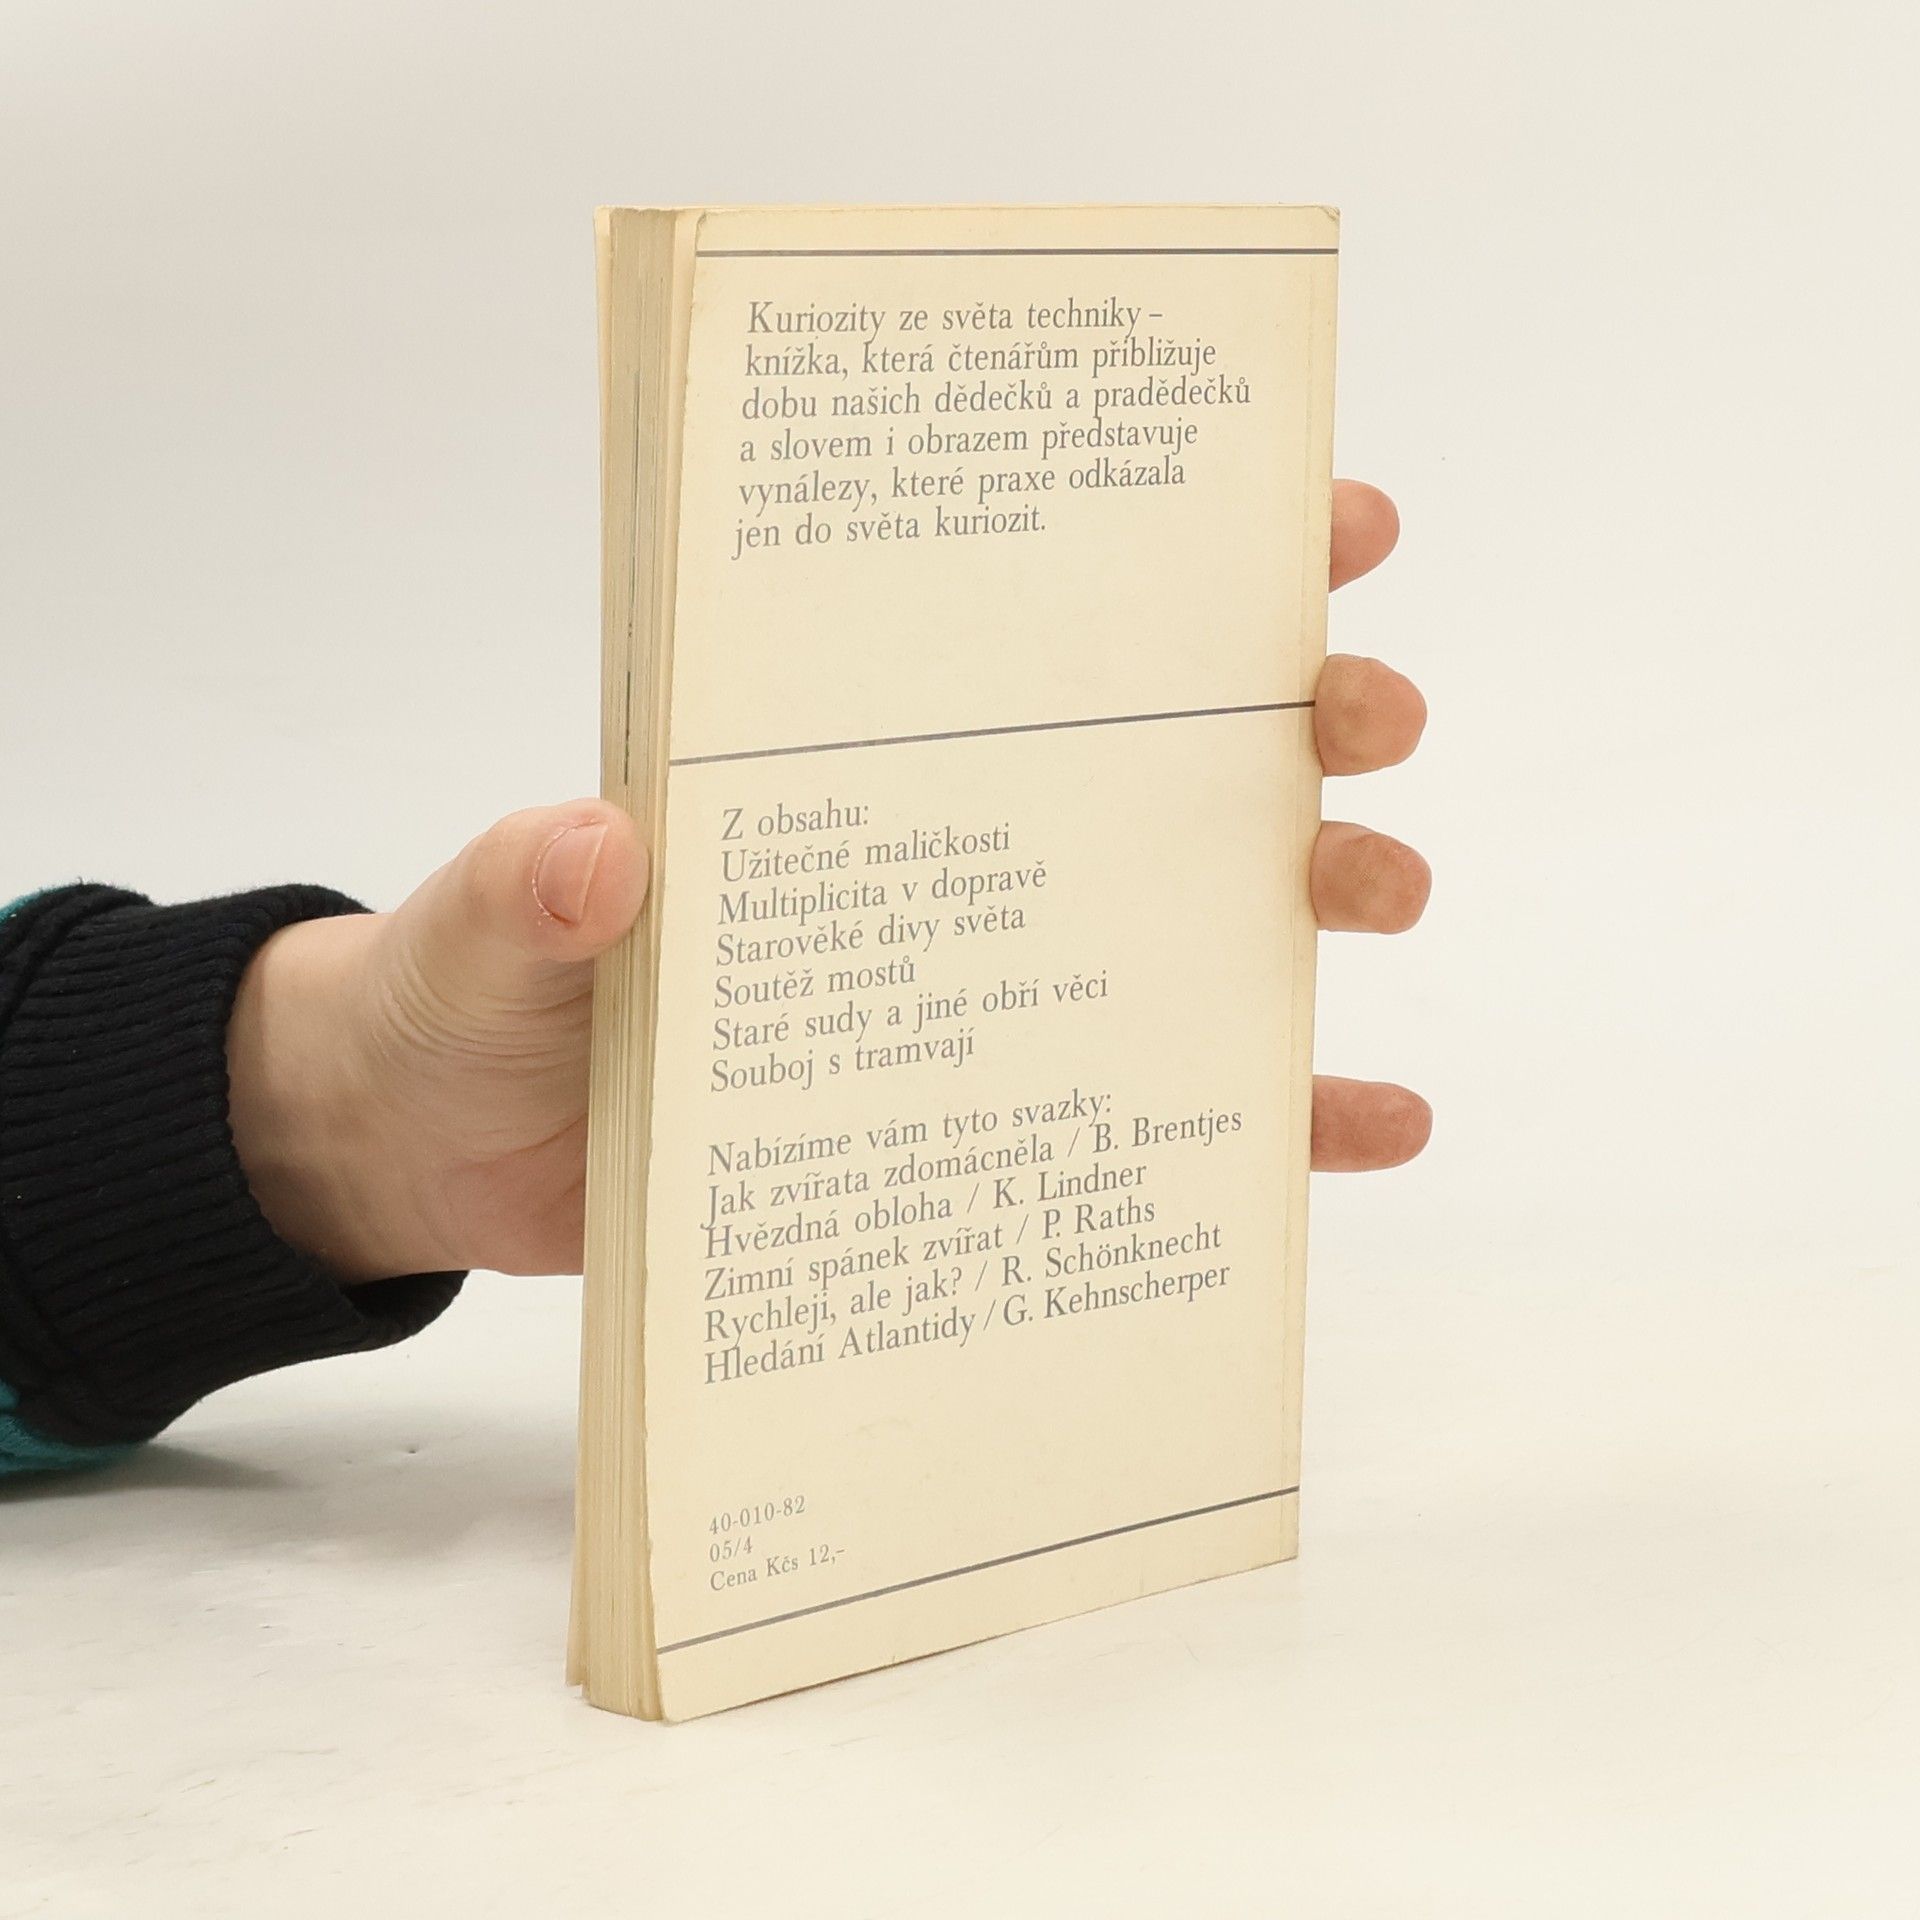 Kuriozity ze světa techniky –
knížka, která čtenářům přibližuje
dobu našich dědečků a pradědečků
a slovem i obrazem představuje
vynálezy, které praxe odkázala
jen do světa kuriozit.
Z obsahu:
Užitečné maličkosti
Multiplicita v dopravě
Starověké divy světa
Soutěž mostů
Staré sudy a jiné obří věci
Souboj s tramvají
Nabízíme vám tyto svazky:
Jak zvířata zdomácněla / B. Brentjes
Hvězdná obloha / K. Lindner
Zimní spánek zvířat / P. Raths
Rychleji, ale jak? / R. Schönknecht
Hledání Atlantidy / G. Kehnscherper
40-010-82
05/4
Cena Kčs 12,-